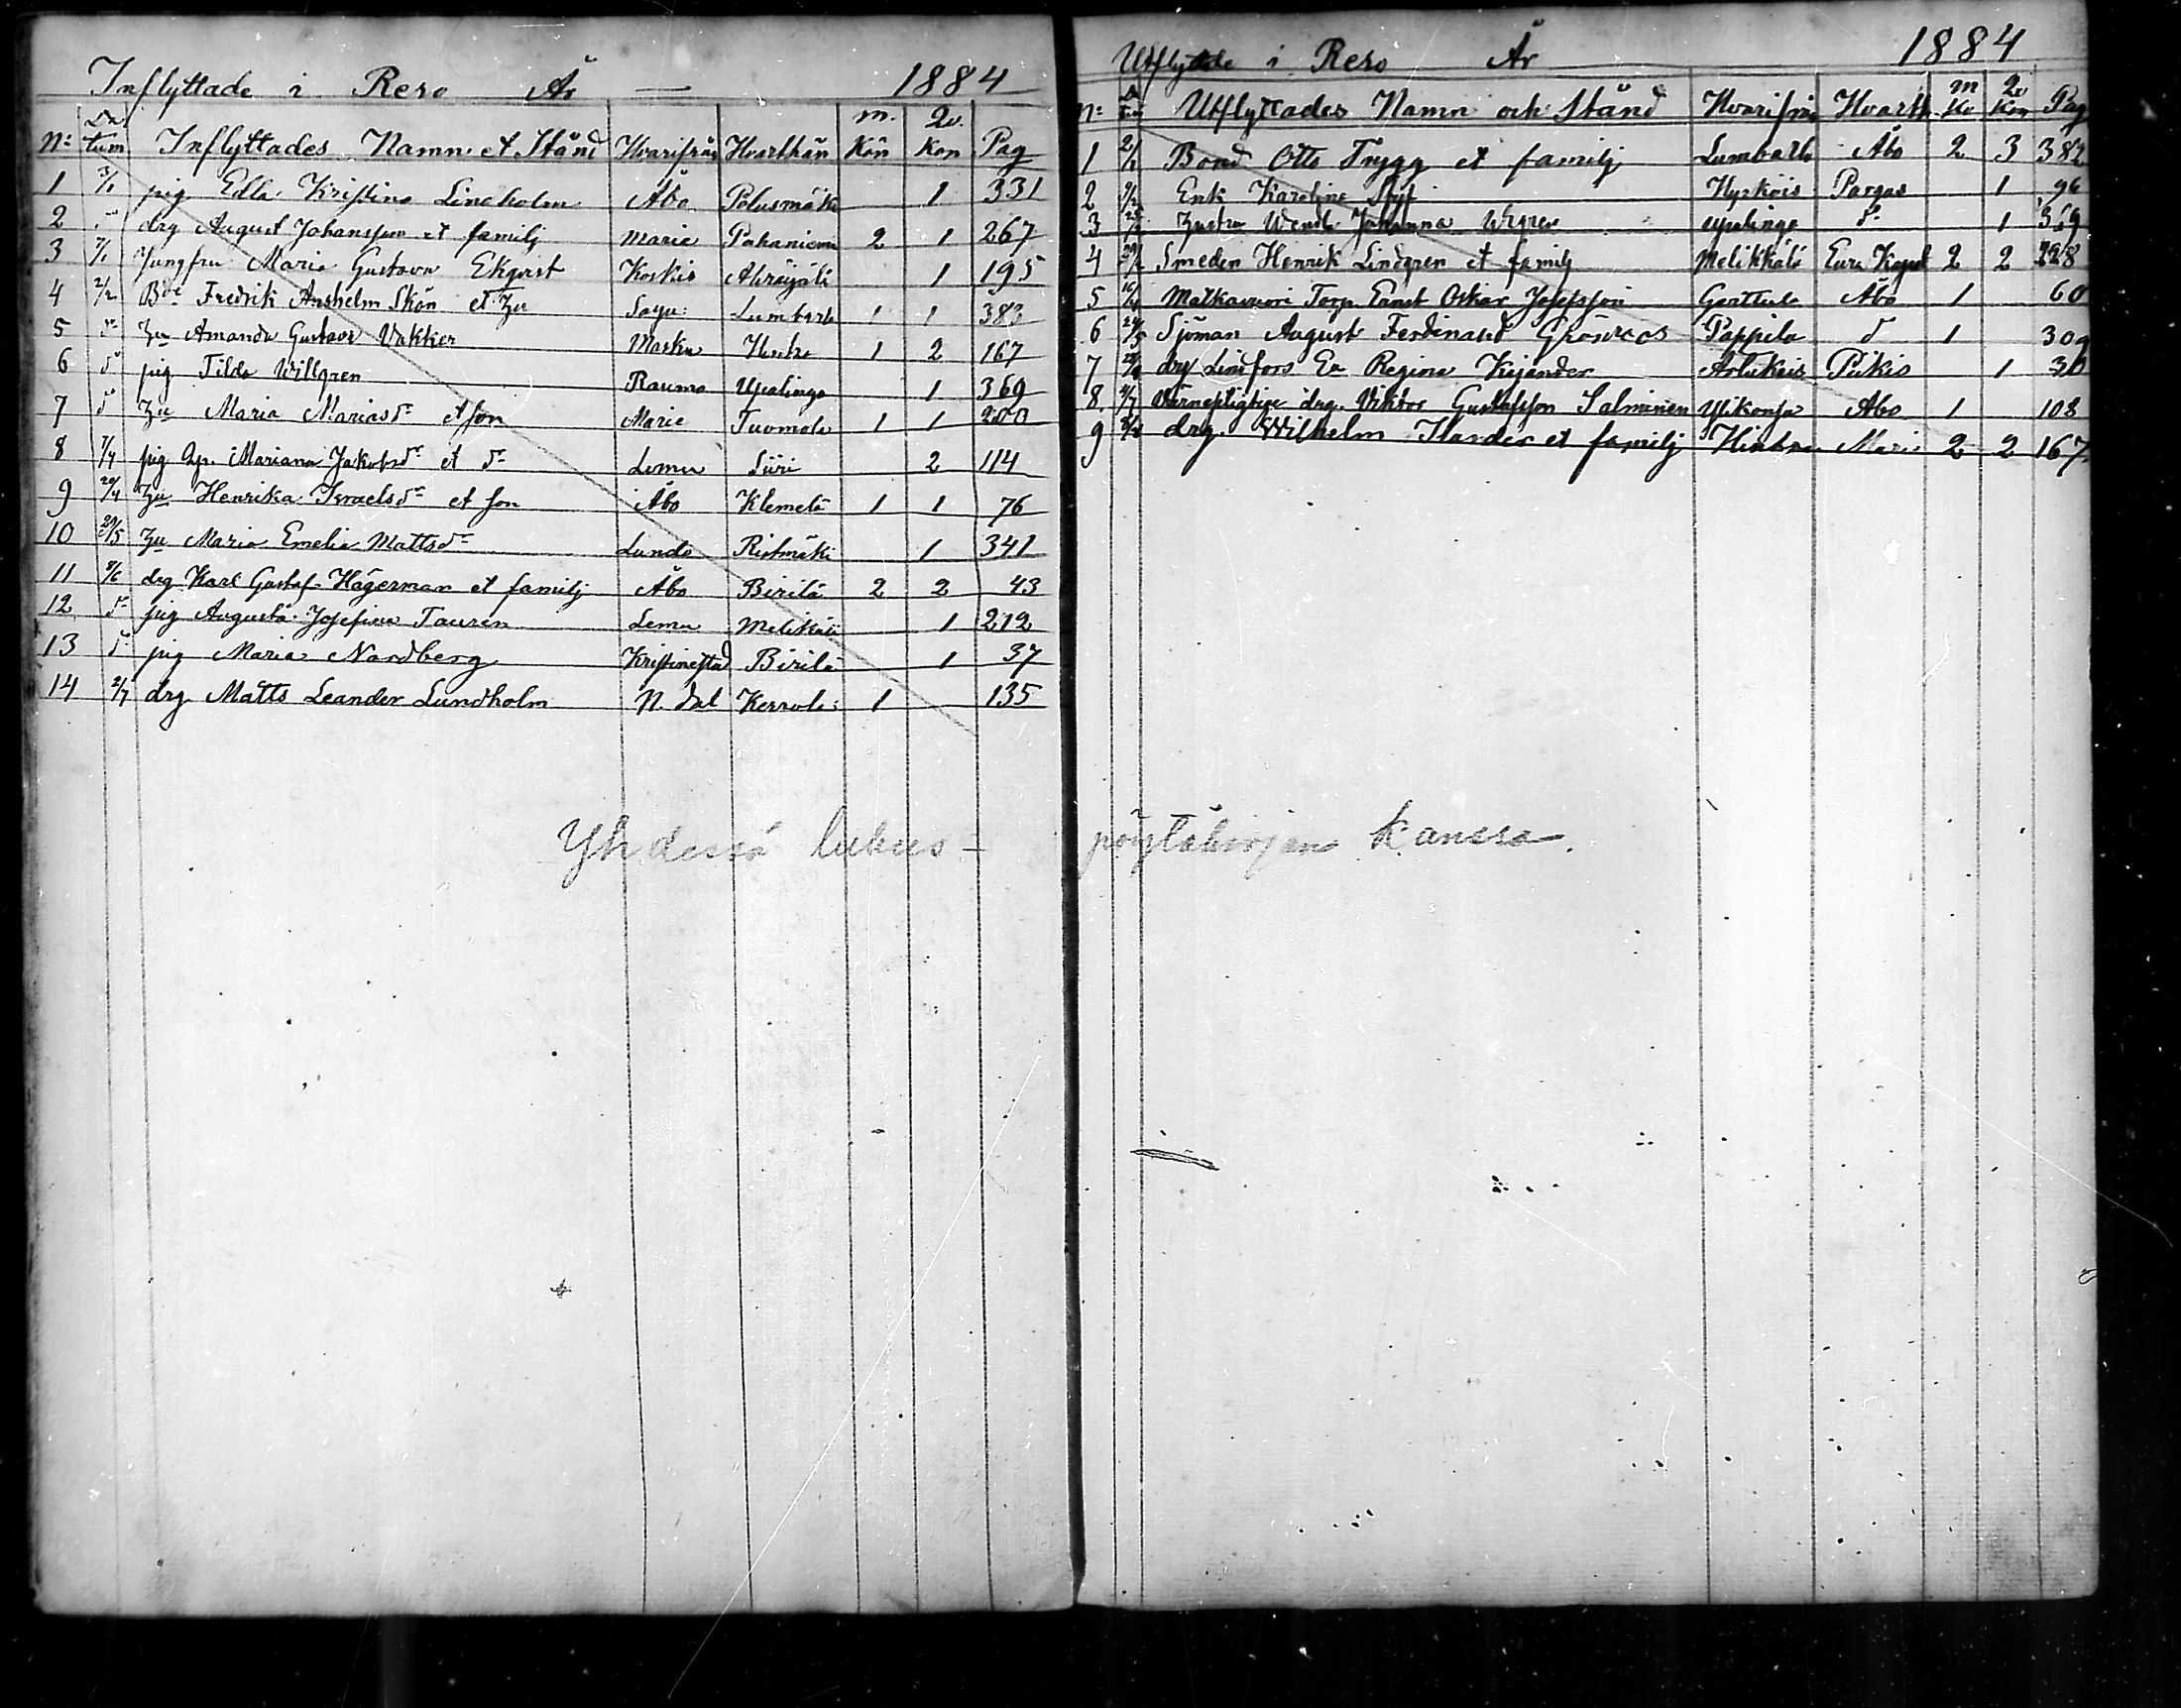 Inflyttade i Reso År — 1884
No Datum Inflyttades Namn et Stånd Hvarifrån Hvarthän m. Kön Qv. Kön Pag
1 3/1 pig Edla Kristina Lindholm Åbo Polusmäki 1 331
2 drg August Johansson et familj Maria Pahaniemi 2 1 267
3 7/1 Jungfru Maria Gustava Ekqvist Koskis 1 195
4 2/2 Fredrik Anshelm Skön et Sagu Lumbarla 1 1 383
5 dº Amanda Gustava Vakker Masku 1 2 167
6 dº pig Tilda Willgren Rauma Upalinge 1 369
7 dº Maria Mariasdr et son Marie Tuomola 1 1 200
8 7/4 pig Mariana Jakobsdr et dr Lemu Siiri 2 114
9 20/4 Henrika Israelsdr et son Åbo Klemelä 1 1 76
10 29/5 Maria Emelia Mattsdr Lundo Ristmäki 1 341
11 8/6 drg Karl Gustaf Hägerman et familj Åbo Birilä 2 2 43
12 dº pig Augusta Josefina Tauren Lemu Melikälä 1 272
13 dº pig Maria Nordberg Kristinestad Birilä 1 37
14 2/7 drg Matts Leander Lundholm N. Kerrola 1 135
Yhdessä lukus-
Utflyttade i Reso År 1884
No Datum Utflyttades Namn och Stånd Hvarifrån Hvarth m Kö Qv Kön Pag
1 2/1 Bond Otto Trygg et familj Lumbarla Åbo 2 3 382
2 9/2 Enk Karolina Hyrköis Pargas 1 96
3 Wendla Johanna upalinge dº 1 369
4 29/2 Smeden Henrik Lindgren et familj Melikkälä Eura Kapel 2 2 228
5 16/4 Matkavuori Torp. Ernst Oskar Josefsson Gerttula Åbo 1 60
6 24/5 Sjöman August Ferdinand Grönroos Pappila dº 1 309
7 drg Lindfors Regina Kejander Artukais Pikis 1 30
8 4/7 Värnepligtige drg. Viktor Gustafsson Salminen Ylikonsa Åbo 1 108
9 drg. Wilhelm et familj Marie 2 2 167
pöytäkirjan kanssa.